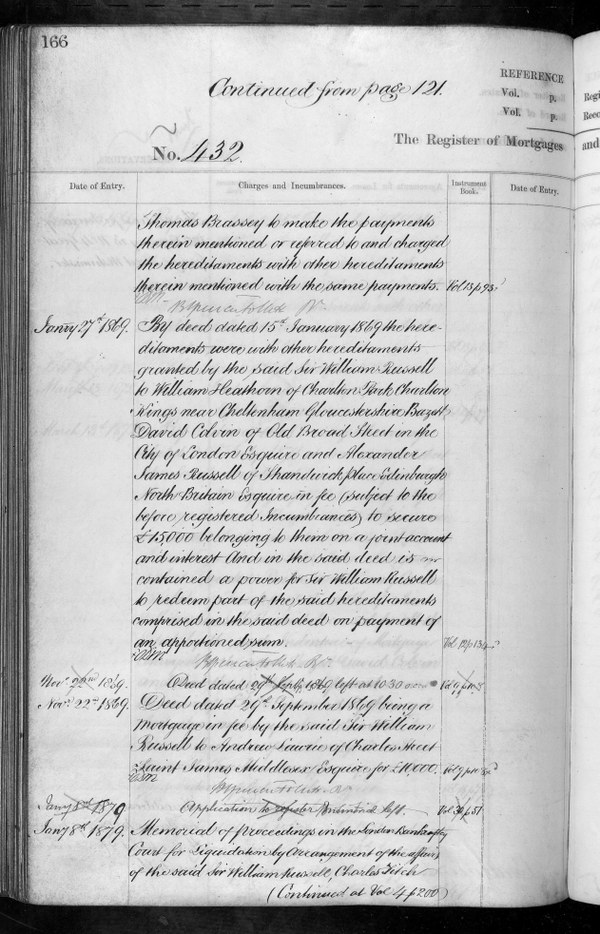 166
Continued from page 121.
REFERENCE
Vol. p.
Vol. p.
No. 432.
The Register of Mortgages
and
Date of Entry.
Charges and Incumbrances.
Instrument Book.
Date of Entry.
Thomas Brassey to make the payments
therein mentioned or referred to and charged
the hereditaments with other hereditaments
therein mentioned with the same payments. Vol 13 p 93
Jan'y 27th 1869. By deed dated 15th January 1869 the here-
ditaments were with other hereditaments
granted by the said Sir William Russell
to William Heathorn of Charlton Park Charlton
Kings near Cheltenham Gloucestershire Bazett
David Colvin of Old Broad Street in the
City of London Esquire and Alexander
James Russell of Shandwick place Edinburgh
North Britain Esquire in fee (subject to the
before registered Incumbrances) to secure
£15000 belonging to them on a joint account
and interest And in the said deed is
contained a power for Sir William Russell
to redeem part of the said hereditaments
comprised in the said deed on payment of
an apportioned sum. Vol. 12 p 134
Nov. 1869. Deed dated 29th Sept 1869 left at 10.30
Nov. 22nd 1869. Deed dated 29th September 1869 being a
Mortgage in fee by the said Sir William
Russell to Andrew Lawrie of Charles Street
Saint James Middlesex Esquire for £10,000.
Jan'y 1879 Application to register Memorial left. Vol 39 p 51
Jan'y 8th 1879. Memorial of proceedings in the London Bankruptcy
Court for Liquidation by Arrangement of the affairs
of the said Sir William Russell, Charles Fitch
(Continued at Vol 4 p 200)